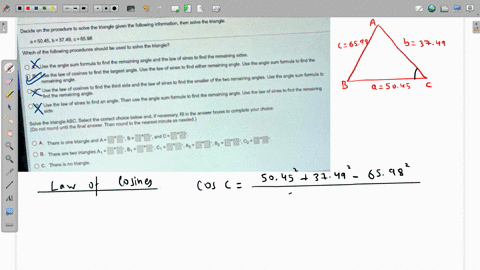 Decide on the procedure to solve the triangle given the following information, then solve the triangle.
a = 50.45, b = 37.49, c = 65.98
Which of the following procedures should be used to solve the triangle?
Use the angle sum formula to find the remaining angle and the law of sines to find the remaining sides.
Use the law of cosines to find the largest angle. Use the law of sines to find either remaining angle. Use the angle sum formula to find the remaining angle.
Use the law of cosines to find the third side and the law of sines to find the smaller of the two remaining angles. Use the angle sum formula to find the remaining angle.
Use the law of sines to find an angle. Then use the angle sum formula to find the remaining angle. Use the law of sines to find the remaining side.
Solve the triangle ABC. Select the correct choice below and, if necessary, fill in the answer boxes to complete your choice.
(Do not round until the final answer. Then round to the nearest minute as needed.)
A. There is one triangle and A = , B = , and C =
B. There are two triangles A₁ = , B₁ = , C₁ = , A₂ = , B₂ = , C₂ =
C. There is no triangle.
A
c=65.98
b=37.49
B
C
a=50.45
Law of Cosines
cos C = 50.45² + 37.49² - 65.98²